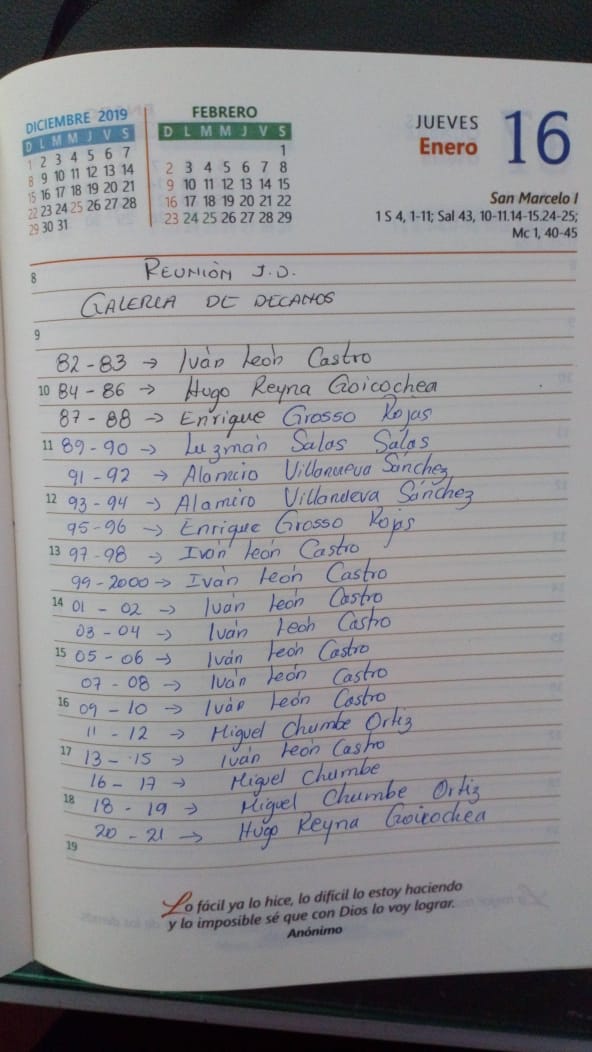 DICIEMBRE 2019
D L M M J V S
1 2 3 4 5 6 7
8 9 10 11 12 13 14
15 16 17 18 19 20 21
22 23 24 25 26 27 28
29 30 31
FEBRERO
D L M M J V S
1
2 3 4 5 6 7 8
9 10 11 12 13 14 15
16 17 18 19 20 21 22
23 24 25 26 27 28 29
JUEVES
Enero
16
San Marcelo I
1 S 4, 1-11; Sal 43, 10-11.14-15.24-25;
Mc 1, 40-45
8 REUNIÓN J.D.
GALERIA DE DECANOS
9
82-83 → Iván León Castro
10 84-86 → Hugo Reyna Goicochea
87-88 → Enrique Grosso Rojas
11 89-90 → Luzmán Salas Salas
91-92 → Alamiro Villanueva Sánchez
12 93-94 → Alamiro Villanueva Sánchez
95-96 → Enrique Grosso Rojas
13 97-98 → Iván León Castro
99-2000 → Iván León Castro
14 01-02 → Iván León Castro
03-04 → Iván León Castro
15 05-06 → Iván León Castro
07-08 → Iván León Castro
16 09-10 → Iván León Castro
11-12 → Miguel Chumbe Ortiz
17 13-15 → Iván León Castro
16-17 → Miguel Chumbe
18 18-19 → Miguel Chumbe Ortiz
20-21 → Hugo Reyna Goicochea
19
Lo fácil ya lo hice, lo difícil lo estoy haciendo
y lo imposible sé que con Dios lo voy lograr.
Anónimo